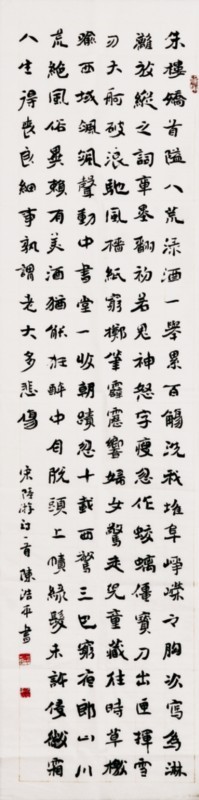 朱樓矯首隘八荒渌酒一舉累百觴洗我堆阜崢嶸之胸次寫為淋
離放縱之詞章墨翻初若鬼神怒字瘦忽作蛟螭僵寶刀出匣揮雪
刃大舸破浪馳風檣紙窮擲筆霹靂響婦女驚走兒童藏往時草檄
喻西域颯颯聲動中書堂一收朝蹟忽十載西驚三巴窮夜郎山川
荒絕風俗異賴有美酒猶能狂醉中自脫頭上幘綠髮未許侵微霜
人生得喪良細事孰謂老大多悲傷
宋陸游詩一首陳浩平書